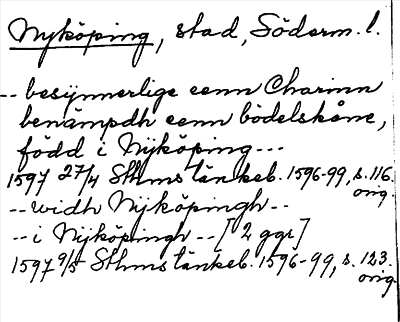 Nyköping, stad, Söderm. l.
-- besynnerlige eenn Charinn
benämpdh eenn bödelskåne,
född i Nyköping ---
1597 27/4 Sthms tänkeb. 1596-99, s. 116.
orig.
-- widh Nyköpingh --
-- i Nyköpingh -- [2 ggr]
1597 9/5 Sthms tänkeb. 1596-99, s. 123.
orig.